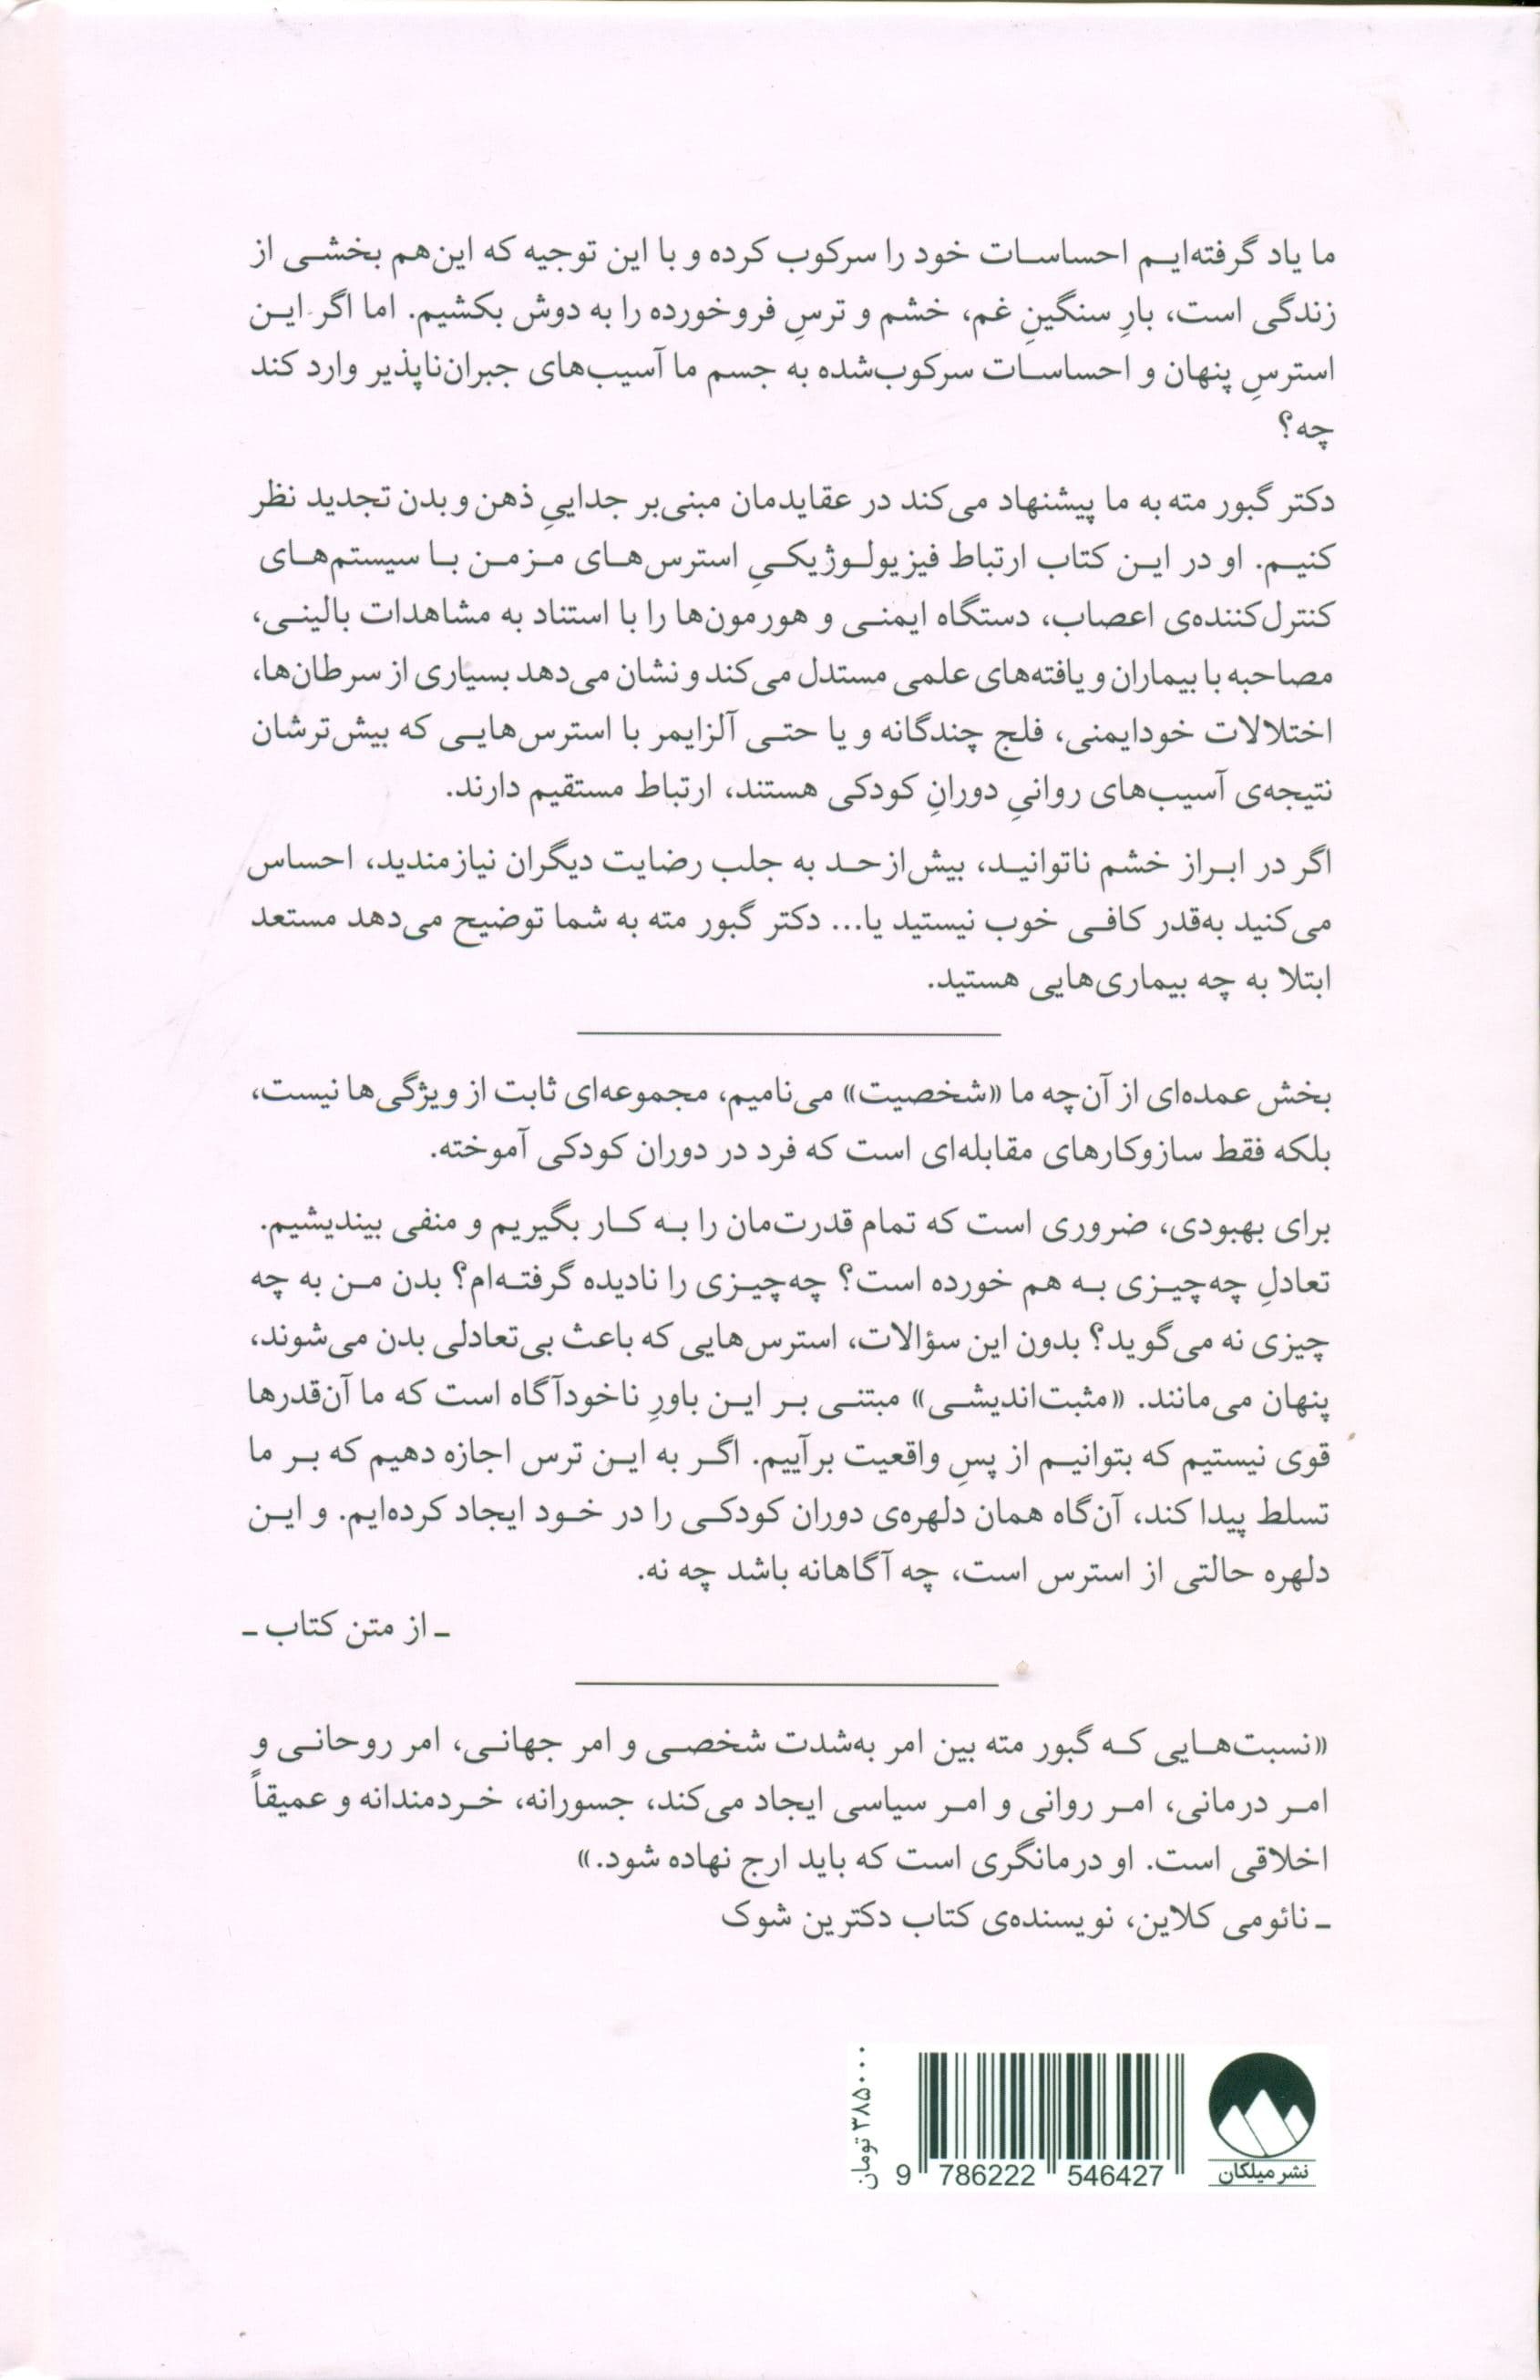 ما یاد گرفته‌ایم احساسات خود را سرکوب کرده و با این توجیه که این‌هم بخشی از
زندگی است، بارِ سنگینِ غم، خشم و ترسِ فروخورده را به دوش بکشیم. اما اگر این
استرسِ پنهان و احساسات سرکوب‌شده به جسم ما آسیب‌های جبران‌ناپذیر وارد کند
چه؟
دکتر گبور مته به ما پیشنهاد می‌کند در عقایدمان مبنی‌بر جداییِ ذهن و بدن تجدید نظر
کنیم. او در این کتاب ارتباط فیزیولوژیکیِ استرس‌های مزمن با سیستم‌های
کنترل‌کننده‌ی اعصاب، دستگاه ایمنی و هورمون‌ها را با استناد به مشاهدات بالینی،
مصاحبه با بیماران و یافته‌های علمی مستدل می‌کند و نشان می‌دهد بسیاری از سرطان‌ها،
اختلالات خودایمنی، فلج چندگانه و یا حتی آلزایمر با استرس‌هایی که بیش‌ترشان
نتیجه‌ی آسیب‌های روانیِ دورانِ کودکی هستند، ارتباط مستقیم دارند.
اگر در ابراز خشم ناتوانید، بیش‌ازحد به جلب رضایت دیگران نیازمندید، احساس
می‌کنید به‌قدر کافی خوب نیستید یا... دکتر گبور مته به شما توضیح می‌دهد مستعد
ابتلا به چه بیماری‌هایی هستید.
بخش عمده‌ای از آن‌چه ما «شخصیت» می‌نامیم، مجموعه‌ای ثابت از ویژگی‌ها نیست،
بلکه فقط سازوکارهای مقابله‌ای است که فرد در دوران کودکی آموخته.
برای بهبودی، ضروری است که تمام قدرت‌مان را به کار بگیریم و منفی بیندیشیم.
تعادلِ چه‌چیزی به هم خورده است؟ چه‌چیزی را نادیده گرفته‌ام؟ بدن من به چه
چیزی نه می‌گوید؟ بدون این سؤالات، استرس‌هایی که باعث بی‌تعادلی بدن می‌شوند،
پنهان می‌مانند. «مثبت‌اندیشی» مبتنی بر این باورِ ناخودآگاه است که ما آن‌قدرها
قوی نیستیم که بتوانیم از پسِ واقعیت برآییم. اگر به این ترس اجازه دهیم که بر ما
تسلط پیدا کند، آن‌گاه همان دلهره‌ی دوران کودکی را در خود ایجاد کرده‌ایم. و این
دلهره حالتی از استرس است، چه آگاهانه باشد چه نه.
ـ از متن کتاب ـ
«نسبت‌هایی که گبور مته بین امر به‌شدت شخصی و امر جهانی، امر روحانی و
امر درمانی، امر روانی و امر سیاسی ایجاد می‌کند، جسورانه، خردمندانه و عمیقاً
اخلاقی است. او درمانگری است که باید ارج نهاده شود.»
ـ نائومی کلاین، نویسنده‌ی کتاب دکترین شوک
نشر میلکان
9 786222 546427
۳۸۵۰۰۰ تومان